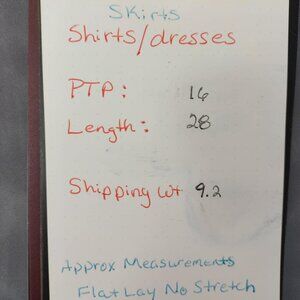 Skirts
Shirts/dresses
PTP: 16
Length: 28
Shipping wt 9.2
Approx Measurements
Flat Lay No Stretch